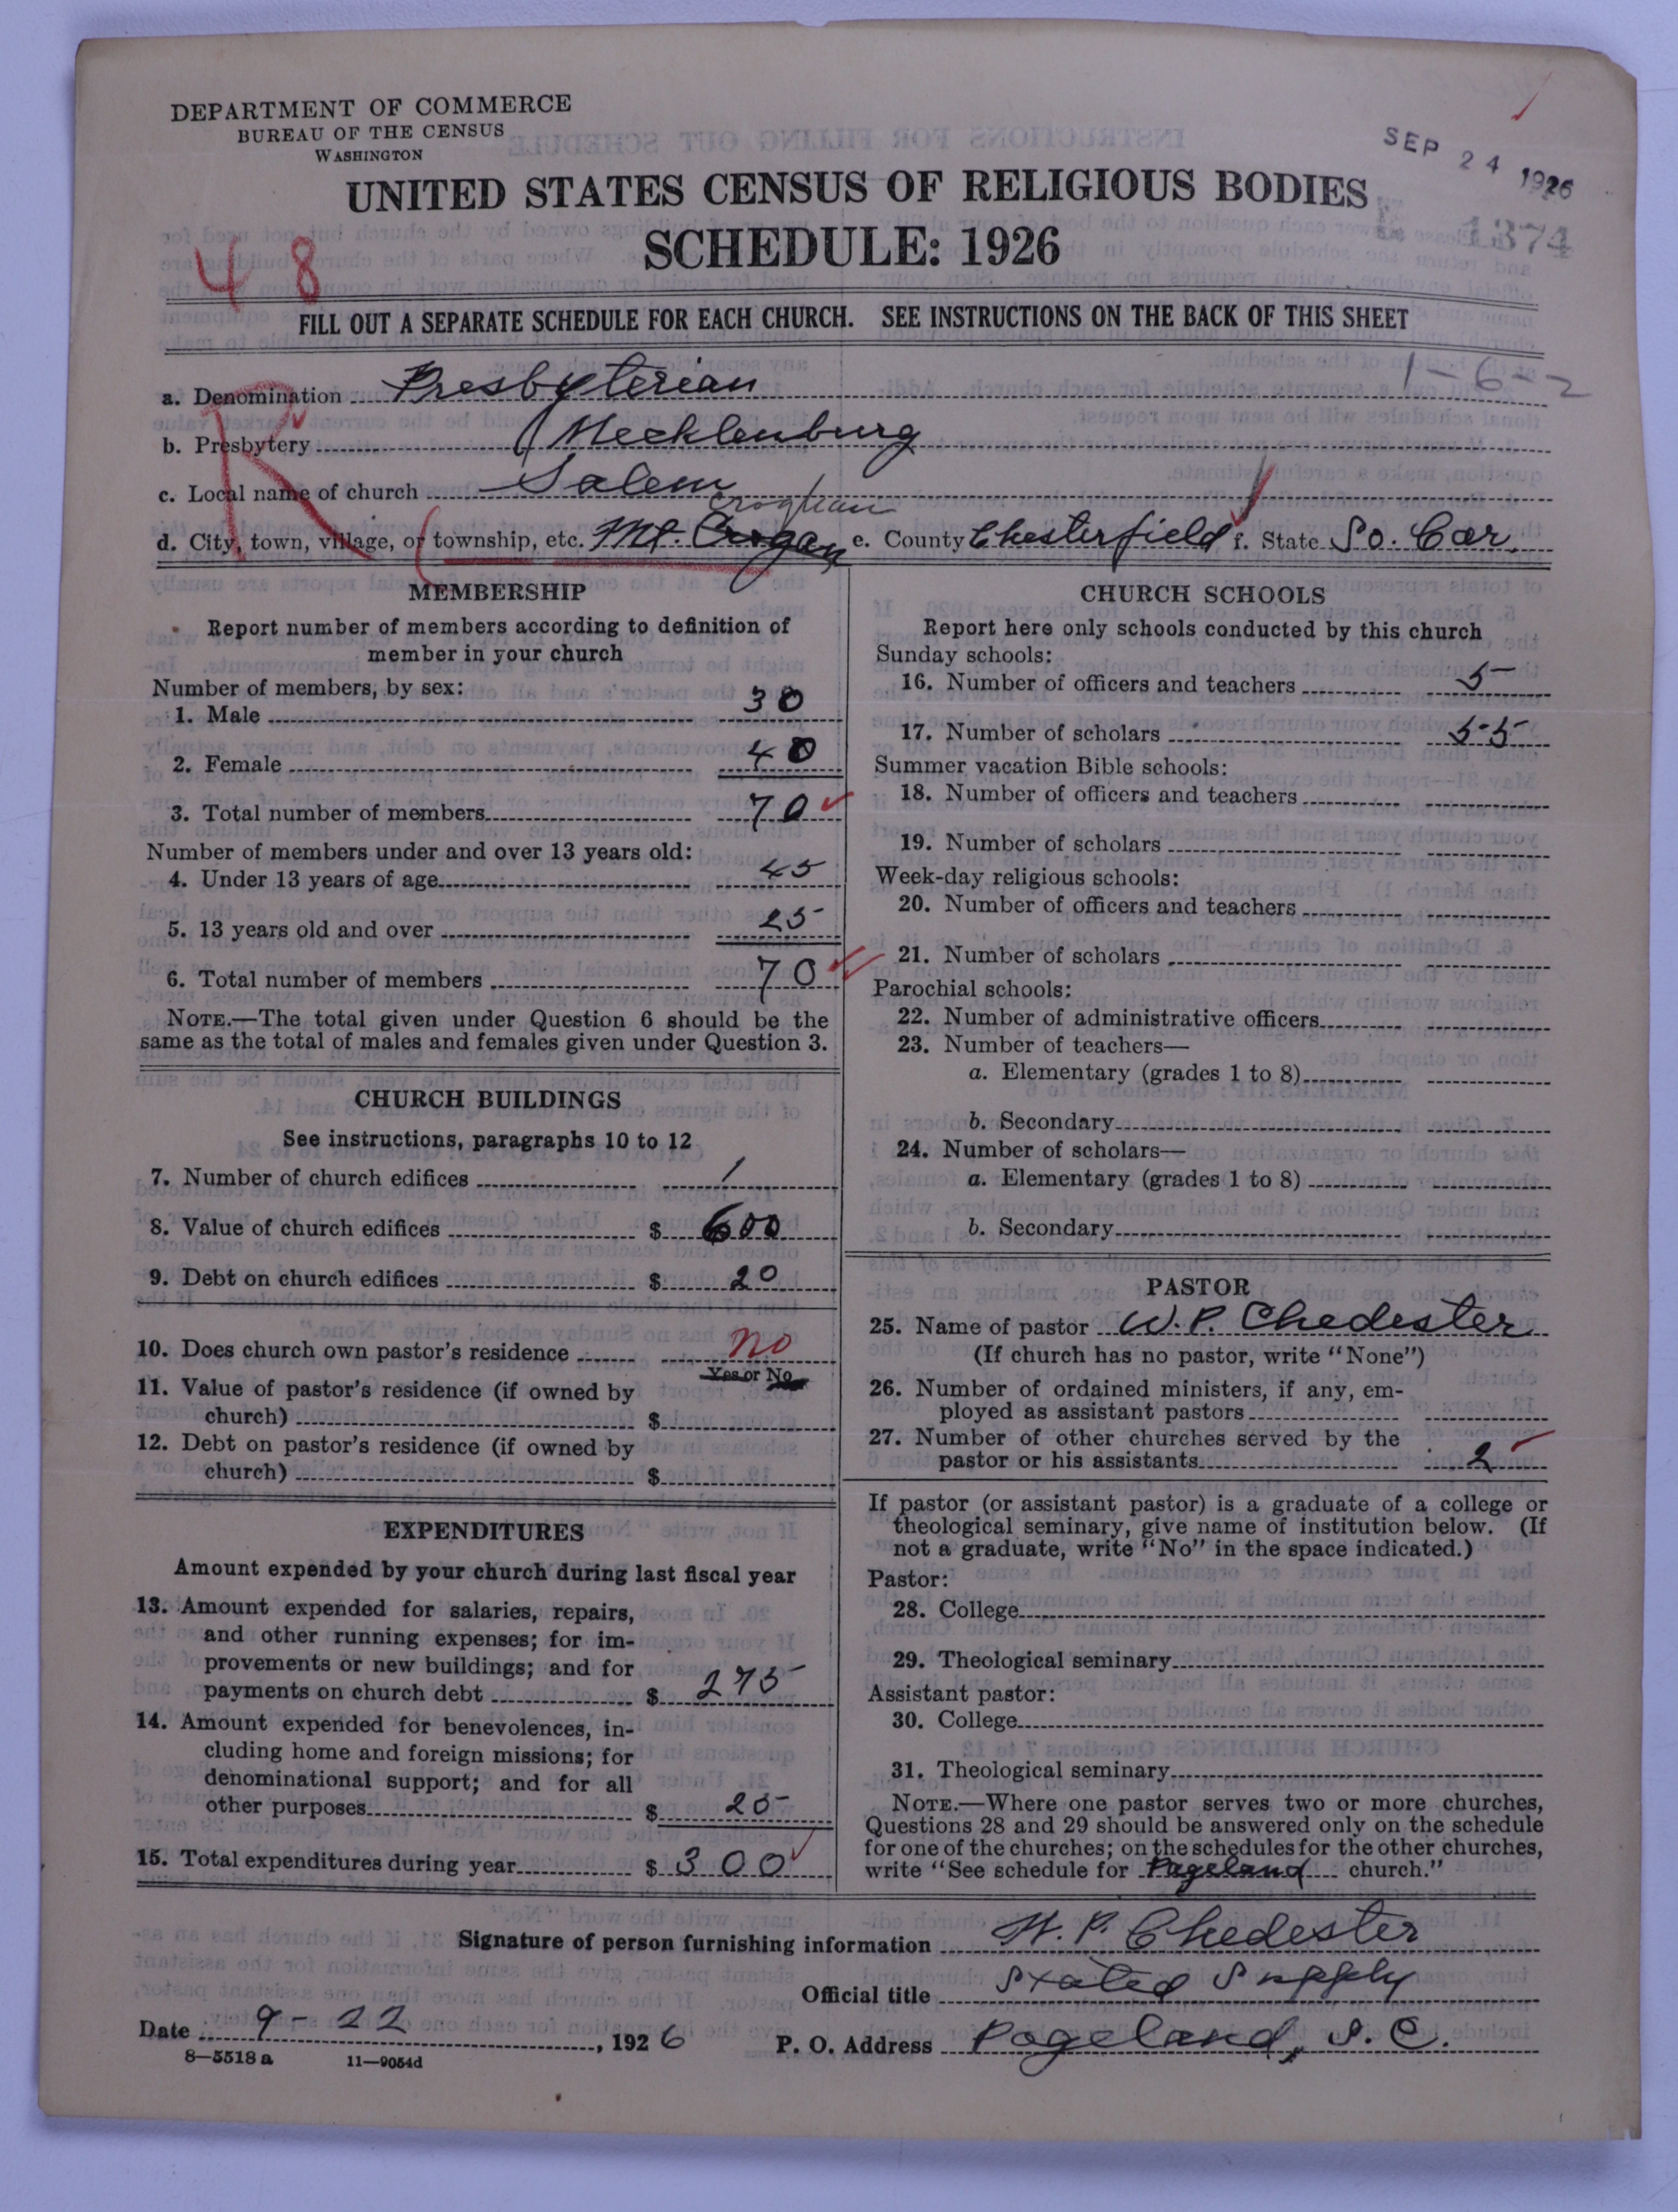 DEPARTMENT OF COMMERCE
BUREAU OF THE CENSUS
WASHINGTON
SEP 24 1926
UNITED STATES CENSUS OF RELIGIOUS BODIES
1374
SCHEDULE: 1926
48
FILL OUT A SEPARATE SCHEDULE FOR EACH CHURCH. SEE INSTRUCTIONS ON THE BACK OF THIS SHEET
1-6-2
a. Denomination Presbyterian
b. Presbytery Mecklenburg
c. Local name of church Salem
R
Croghan
d. City, town, village, or township, etc. Mt. Crogan e. County Chesterfield f. State So. Car.
MEMBERSHIP
Report number of members according to definition of
member in your church
Number of members, by sex:
1. Male 30
2. Female 40
3. Total number of members 70
Number of members under and over 13 years old:
4. Under 13 years of age 45
5. 13 years old and over 25
6. Total number of members 70
NOTE.—The total given under Question 6 should be the
same as the total of males and females given under Question 3.
CHURCH BUILDINGS
See instructions, paragraphs 10 to 12
7. Number of church edifices 1
8. Value of church edifices $ 600
9. Debt on church edifices $ 20
10. Does church own pastor's residence no
Yes or No
11. Value of pastor's residence (if owned by
church) $
12. Debt on pastor's residence (if owned by
church) $
EXPENDITURES
Amount expended by your church during last fiscal year
13. Amount expended for salaries, repairs,
and other running expenses; for im-
provements or new buildings; and for
payments on church debt $ 275
14. Amount expended for benevolences, in-
cluding home and foreign missions; for
denominational support; and for all
other purposes $ 25
15. Total expenditures during year $ 300
CHURCH SCHOOLS
Report here only schools conducted by this church
Sunday schools:
16. Number of officers and teachers 5
17. Number of scholars 55
Summer vacation Bible schools:
18. Number of officers and teachers
19. Number of scholars
Week-day religious schools:
20. Number of officers and teachers
21. Number of scholars
Parochial schools:
22. Number of administrative officers
23. Number of teachers—
a. Elementary (grades 1 to 8)
b. Secondary
24. Number of scholars—
a. Elementary (grades 1 to 8)
b. Secondary
PASTOR
25. Name of pastor W. P. Chedester
(If church has no pastor, write "None")
26. Number of ordained ministers, if any, em-
ployed as assistant pastors
27. Number of other churches served by the
pastor or his assistants 2
If pastor (or assistant pastor) is a graduate of a college or
theological seminary, give name of institution below. (If
not a graduate, write "No" in the space indicated.)
Pastor:
28. College
29. Theological seminary
Assistant pastor:
30. College
31. Theological seminary
NOTE.—Where one pastor serves two or more churches,
Questions 28 and 29 should be answered only on the schedule
for one of the churches; on the schedules for the other churches,
write "See schedule for Pageland church."
Signature of person furnishing information W. P. Chedester
Official title Stated Supply
Date 9-22, 1926 P. O. Address Pageland, S. C.
8—5518 a 11—9054d